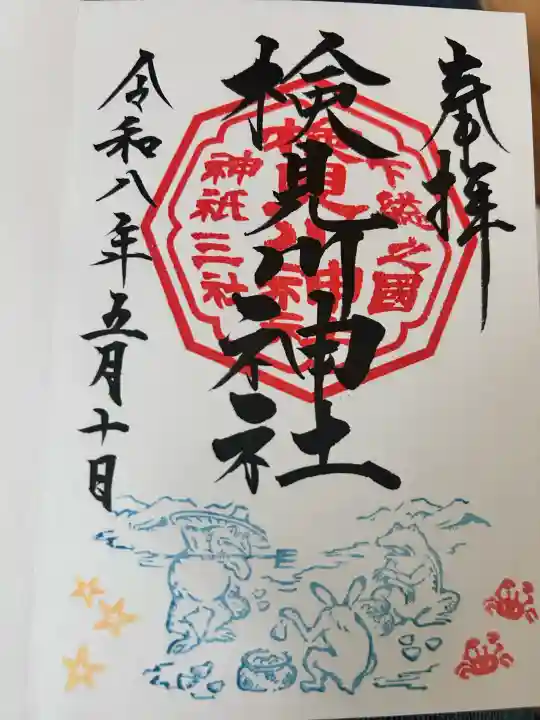 奉拝
下総之國
検見川神社
検見川神社
神祇三社
令和八年五月十日